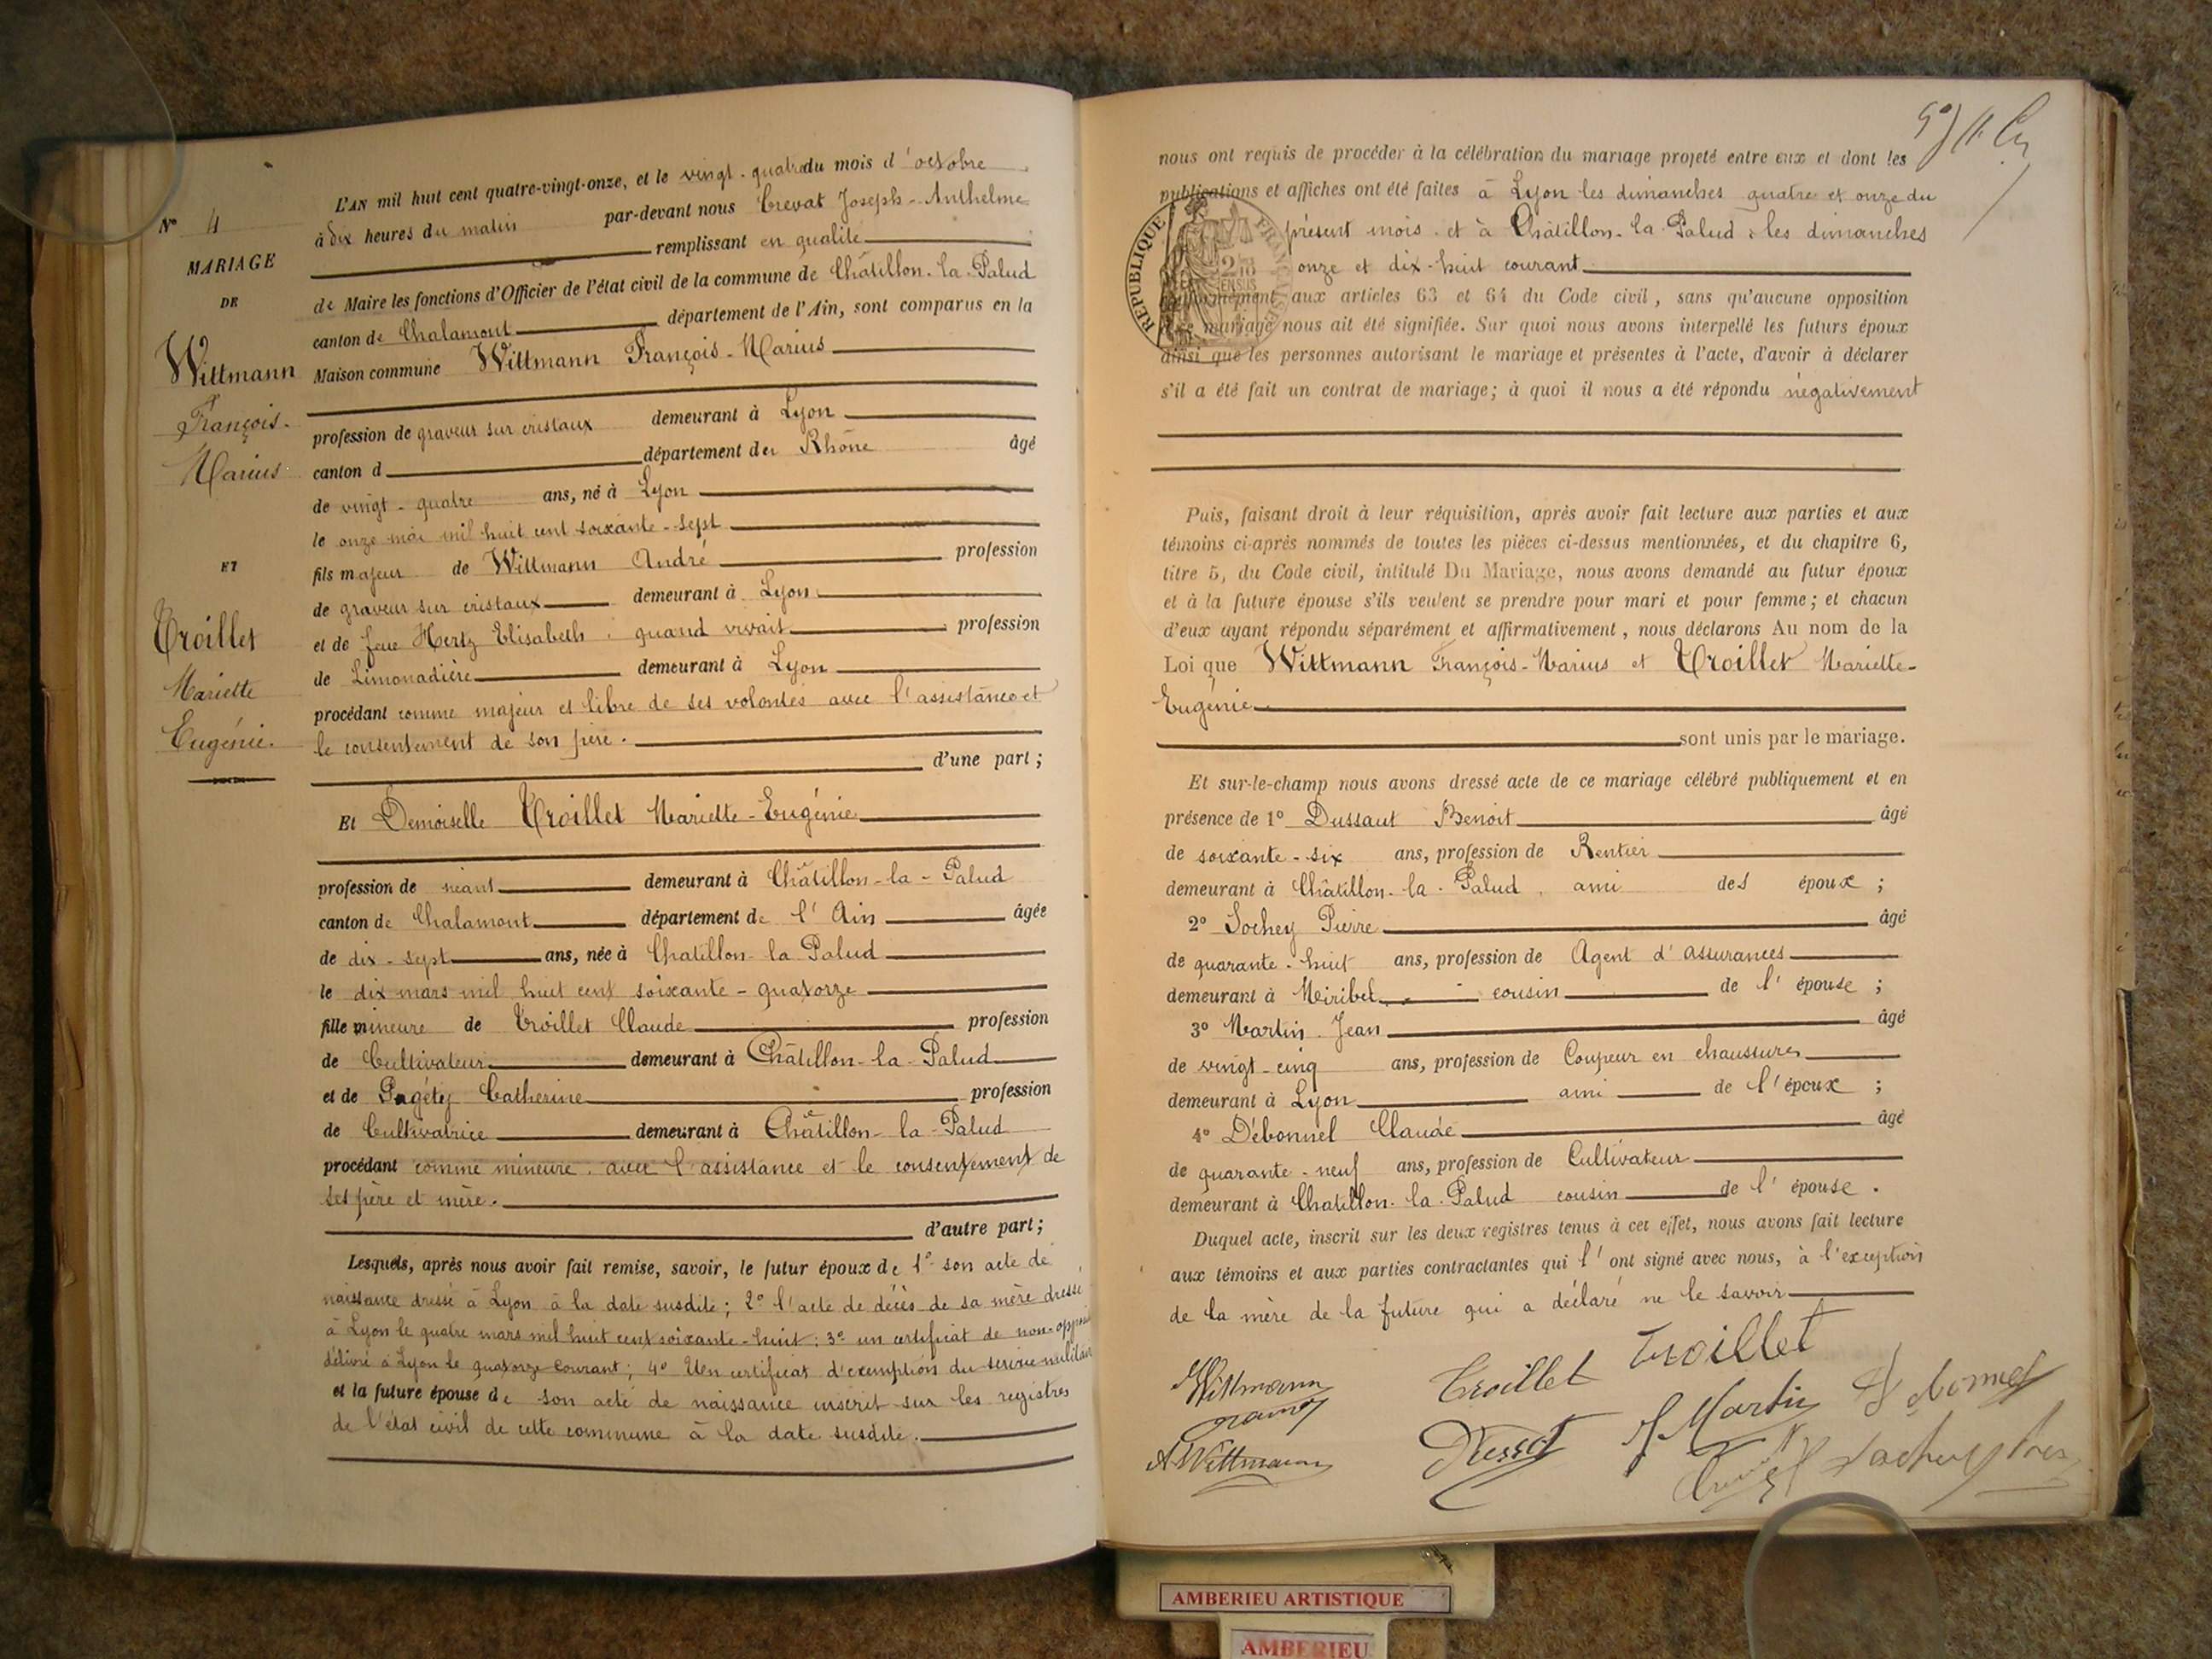 N° 4
MARIAGE
DE
Wittmann
François-
Marius
ET
Troillet
Mariette
Eugénie.
L'AN mil huit cent quatre-vingt-onze, et le vingt-quatre du mois d'octobre
à dix heures du matin par-devant nous Crevat Joseph-Anthelme
remplissant en qualité
de Maire les fonctions d'Officier de l'état civil de la commune de Châtillon-la-Palud
canton de Chalamont département de l'Ain, sont comparus en la
Maison commune Wittmann François-Marius
profession de graveur sur cristaux demeurant à Lyon
canton d département du Rhône âgé
de vingt-quatre ans, né à Lyon
le onze mai mil huit cent soixante-sept
fils majeur de Wittmann André profession
de graveur sur cristaux demeurant à Lyon
et de feue Hertz Elisabeth, quand vivait profession
de Limonadière demeurant à Lyon
procédant comme majeur et libre de ses volontés avec l'assistance et
le consentement de son père.
d'une part;
Et Demoiselle Troillet Mariette-Eugénie
profession de néant demeurant à Châtillon-la-Palud
canton de Chalamont département de l'Ain âgée
de dix-sept ans, née à Chatillon-la Palud
le dix mars mil huit cent soixante-quatorze
fille mineure de Troillet Claude profession
de Cultivateur demeurant à Châtillon-la-Palud
et de Pagéty Catherine profession
de Cultivatrice demeurant à Châtillon-la-Palud
procédant comme mineure avec l'assistance et le consentement de
ses père et mère.
d'autre part;
Lesquels, après nous avoir fait remise, savoir, le futur époux de 1° son acte de
naissance dressé à Lyon à la date susdite; 2° l'acte de décès de sa mère dressé
à Lyon le quatre mars mil huit cent soixante-huit; 3° un certificat de non-opposi
délivré à Lyon le quatorze courant; 4° Un certificat d'exemption du service militaire
et la future épouse de son acte de naissance inscrit sur les registres
de l'état civil de cette commune à la date susdite.
nous ont requis de procéder à la célébration du mariage projeté entre eux et dont les
publications et affiches ont été faites à Lyon les dimanches quatre et onze du
présent mois et à Châtillon-la-Palud les dimanches
onze et dix-huit courant
RÉPUBLIQUE FRANÇAISE
conformément aux articles 63 et 64 du Code civil, sans qu'aucune opposition
à ce mariage nous ait été signifiée. Sur quoi nous avons interpellé les futurs époux
ainsi que les personnes autorisant le mariage et présentes à l'acte, d'avoir à déclarer
s'il a été fait un contrat de mariage; à quoi il nous a été répondu négativement
Puis, faisant droit à leur réquisition, après avoir fait lecture aux parties et aux
témoins ci-après nommés de toutes les pièces ci-dessus mentionnées, et du chapitre 6,
titre 5, du Code civil, intitulé Du Mariage, nous avons demandé au futur époux
et à la future épouse s'ils veulent se prendre pour mari et pour femme; et chacun
d'eux ayant répondu séparément et affirmativement, nous déclarons Au nom de la
Loi que Wittmann François-Marius et Troillet Mariette-
Eugénie
sont unis par le mariage.
Et sur-le-champ nous avons dressé acte de ce mariage célébré publiquement et en
présence de 1° Dussaut Benoit âgé
de soixante-six ans, profession de Rentier
demeurant à Châtillon-la-Palud, ami des époux;
2° Sochey Pierre âgé
de quarante-huit ans, profession de Agent d'assurances
demeurant à Miribel cousin de l'épouse;
3° Martin Jean âgé
de vingt-cinq ans, profession de Coupeur en chaussures
demeurant à Lyon ami de l'époux;
4° Débonnel Claude âgé
de quarante-neuf ans, profession de Cultivateur
demeurant à Chatillon-la-Palud cousin de l'épouse.
Duquel acte, inscrit sur les deux registres tenus à cet effet, nous avons fait lecture
aux témoins et aux parties contractantes qui l'ont signé avec nous, à l'exception
de la mère de la future qui a déclaré ne le savoir
Wittmann
Troillet
Troillet
A Wittmann
J Martin
AMBERIEU ARTISTIQUE
AMBERIEU